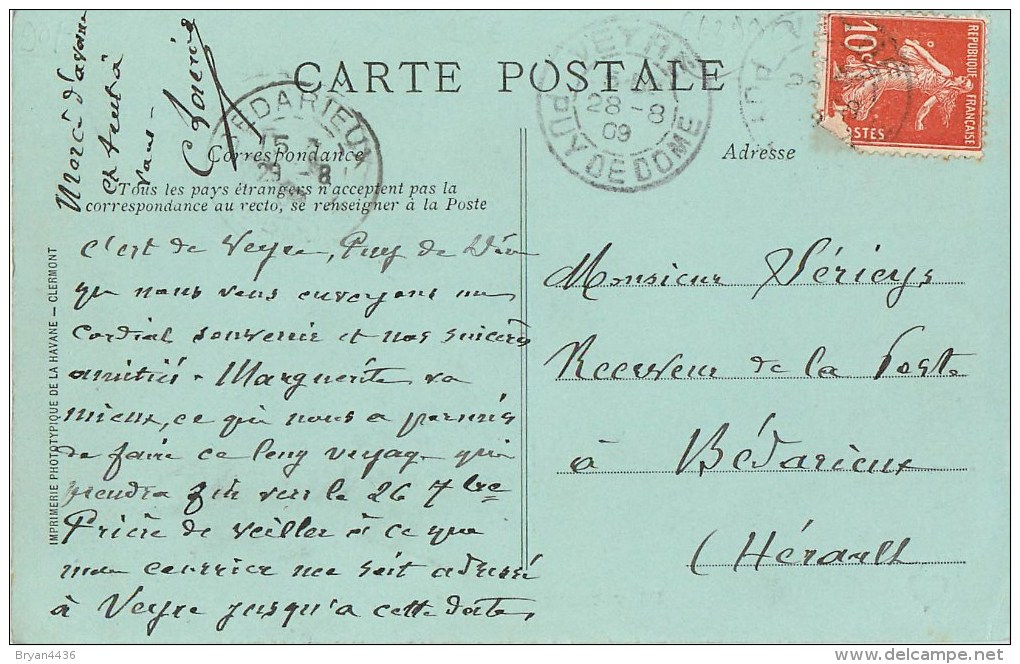 Merci d'avance
CARTE POSTALE
Correspondance
Adresse
Tous les pays étrangers n'acceptent pas la
correspondance au recto, se renseigner à la Poste
IMPRIMERIE PHOTOTYPIQUE DE LA HAVANE — CLERMONT
BEDARIEUX
15
29 - 8
VEYRE
28 - 8
09
PUY DE DOME
REPUBLIQUE FRANÇAISE
10c
POSTES
C'est de Veyre, Puy de Dôme
que nous vous envoyons un
cordial souvenir et nos sincères
amitiés. Marguerite va
mieux, ce qui nous a permis
de faire ce long voyage qui
prendra fin vers le 26 7bre
Prière de veiller à ce que
mon courrier me soit adressé
à Veyre jusqu'à cette date,
Monsieur Sérieys
Receveur de la Poste
à Bédarieux
(Hérault
Bryan4436
www.delcampe.net